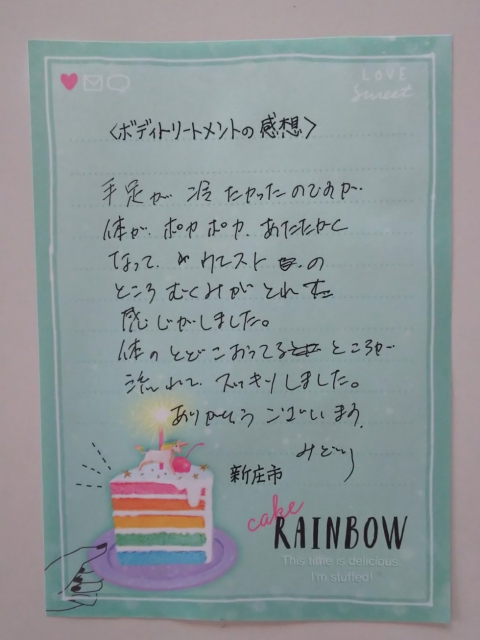 LOVE
Sweet
〈ボディトリートメントの感想〉
手足が 冷たかったのですが、
体が、ポカポカ、あたたかく
なって、ウエスト の
ところむくみがとれた
感じがしました。
体のとどこおってる ところが
流れて、スッキリしました。
ありがとうございます。
みどり
新庄市
cake
RAINBOW
This time is delicious.
I'm stuffed!